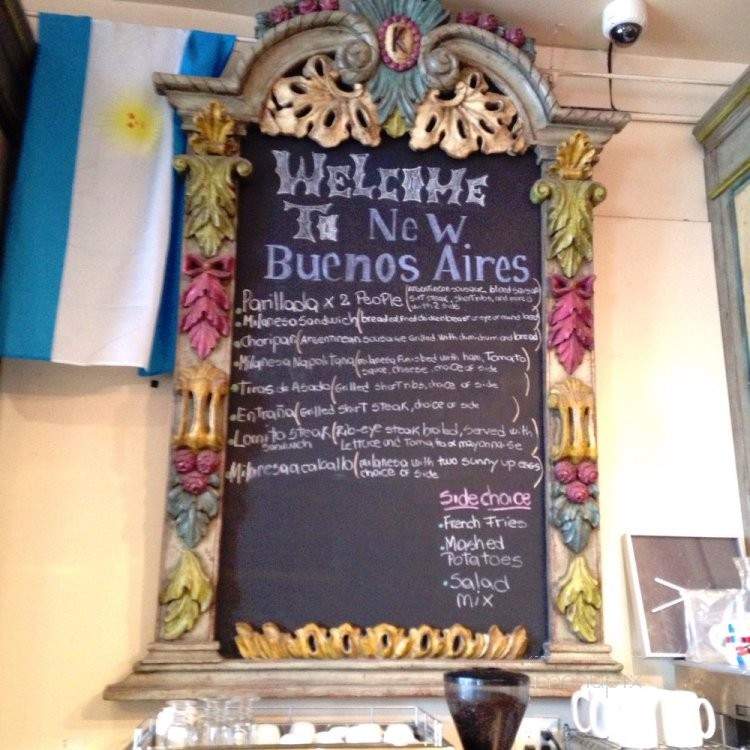 K
WELCOME
To NeW
Buenos Aires
• Parillada x 2 People (Argentinean sausage, blood sausage
skirt steak, short ribs, and more
with 2 side
• Milanesa Sandwich (breaded fried chicken breast or eye of round beef)
• Choripan (Argentinean sausage Grilled with chimichurri and bread)
• Milanesa Napolitana (milanesa finished with ham, Tomato
sauce, cheese, choice of side
• Tiras de Asado (Grilled short ribs, choice of side
• Entraña (Grilled skirt steak, choice of side)
• Lomito steak (Rib-eye steak broiled, served with
Sandwich Lettuce and Tomato & mayonnaise
• Milanesa a caballo (milanesa with two sunny up eggs
choice of side
Side choice
• French Fries
• Mashed
Potatoes
• Salad
mix